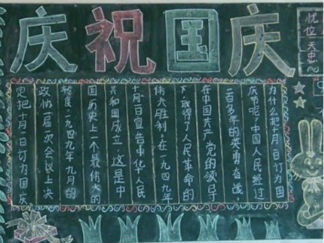 庆祝国庆
为什么把十月一日订为国
庆节呢?中国人民经过
一百多年的英勇奋战
在中国共产党的领导
下取得了人民革命的
伟大胜利,在一九四九年
十月一日宣告中华人民
共和国成立,这是中
国历史上一个最伟大的
转变一九四九年九月的
政协一届一次会议上决
定把十月一日订为国